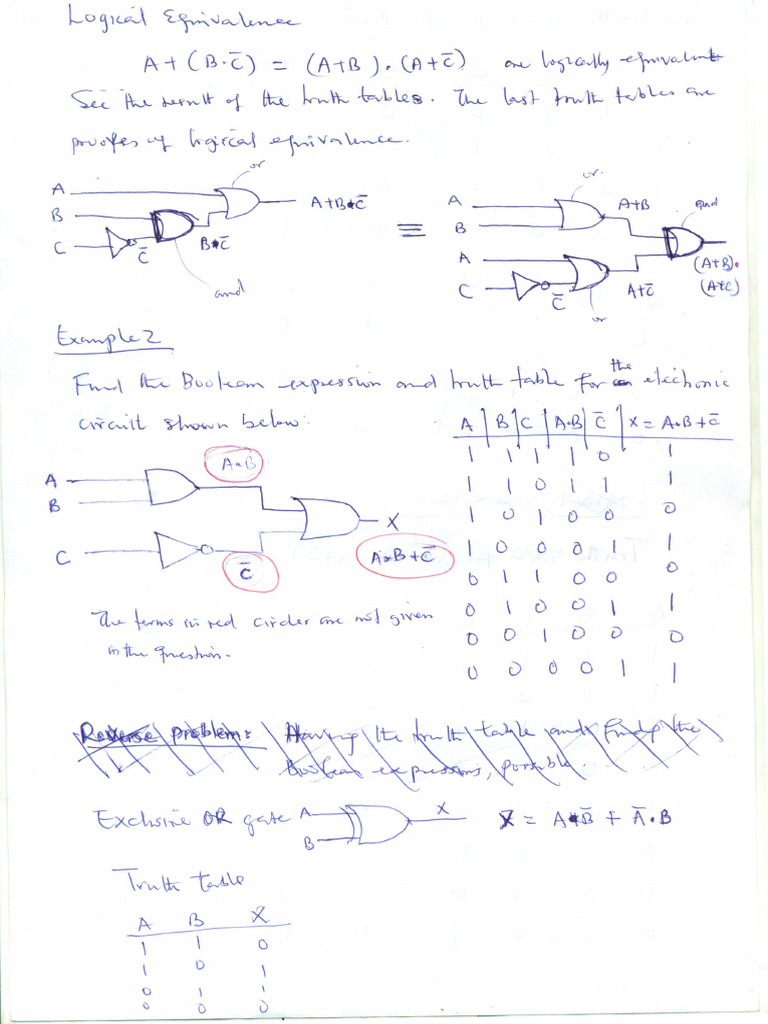 Logical Equivalence
A + (B · C̅) = (A+B) · (A+C̅) are logically equivalent
See the result of the truth tables. The last truth tables are
proofes of logical equivalence.
or
A
B
C
C̅
B•C̅
A+B•C̅
and
≡
or
A
B
A+B
and
A
C
C̅
A+C̅
(A+B)•
(A+C̅)
or
Example 2
Find the Boolean expression and truth table for the electronic
circuit shown below:
A
B
A•B
C
C̅
X
A•B+C̅
A | B | C | A•B | C̅ | X = A•B+C̅
1 1 1 1 0 1
1 1 0 1 1 1
1 0 1 0 0 0
1 0 0 0 1 1
0 1 1 0 0 0
0 1 0 0 1 1
0 0 1 0 0 0
0 0 0 0 1 1
The terms in red circles are not given
in the question.
Reverse problem: Having the truth table and finding the
Boolean expressions, possible.
Exclusive OR gate
A
B
X
X = A•B̅ + A̅•B
Truth table
A B X
1 1 0
1 0 1
0 1 1
0 0 0